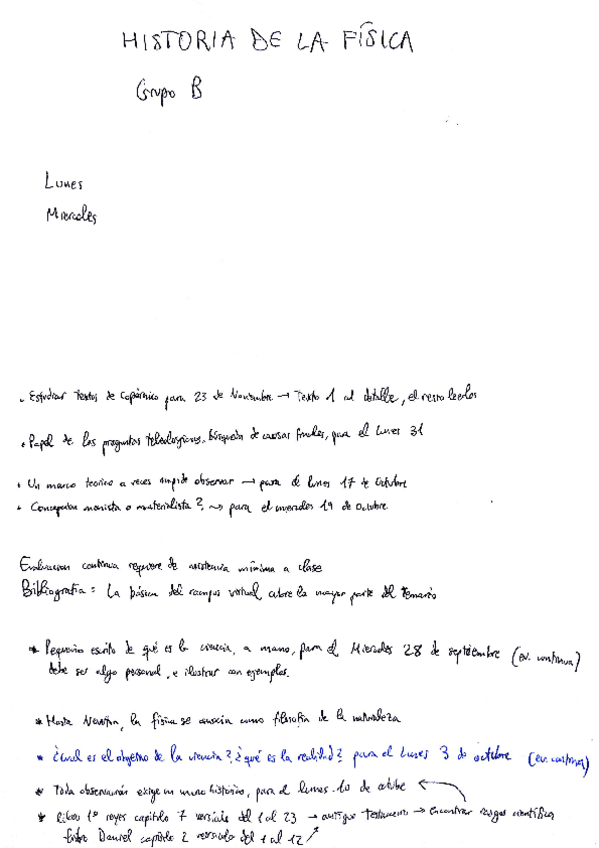 HISTORIA DE LA FÍSICA
Grupo B
Lunes
Miercoles
. Estudiar textos de Copérnico para 23 de Noviembre → Texto 1 al detalle, el resto leerlos
. Papel de las preguntas teleologicas, búsqueda de causas finales, para el lunes 31
. Un marco teorico a veces impide observar → para el lunes 17 de Octubre
. Concepcion monista o materialista? → para el miercoles 19 de Octubre
Evaluacion continua requiere de asistencia mínima a clase
Bibliografia: La básica del campus virtual cubre la mayor parte del temario
* Pequeño escrito de qué es la ciencia, a mano, para el Miercoles 28 de septiembre (ev. continua)
debe ser algo personal, e ilustrar con ejemplos.
* Hasta Newton, la física se conocia como filosofia de la naturaleza
* ¿Cual es el objetivo de la ciencia? ¿qué es la realidad? para el Lunes 3 de octubre (ev. continua)
* Toda observación exige un marco histórico, para el lunes 10 de octubre ←
* Libro 1º reyes capitulo 7 versiculo del 1 al 23 → antiguo testamento → encontrar rasgos cientificos
Daniel capitulo 2 versiculo del 1 al 12